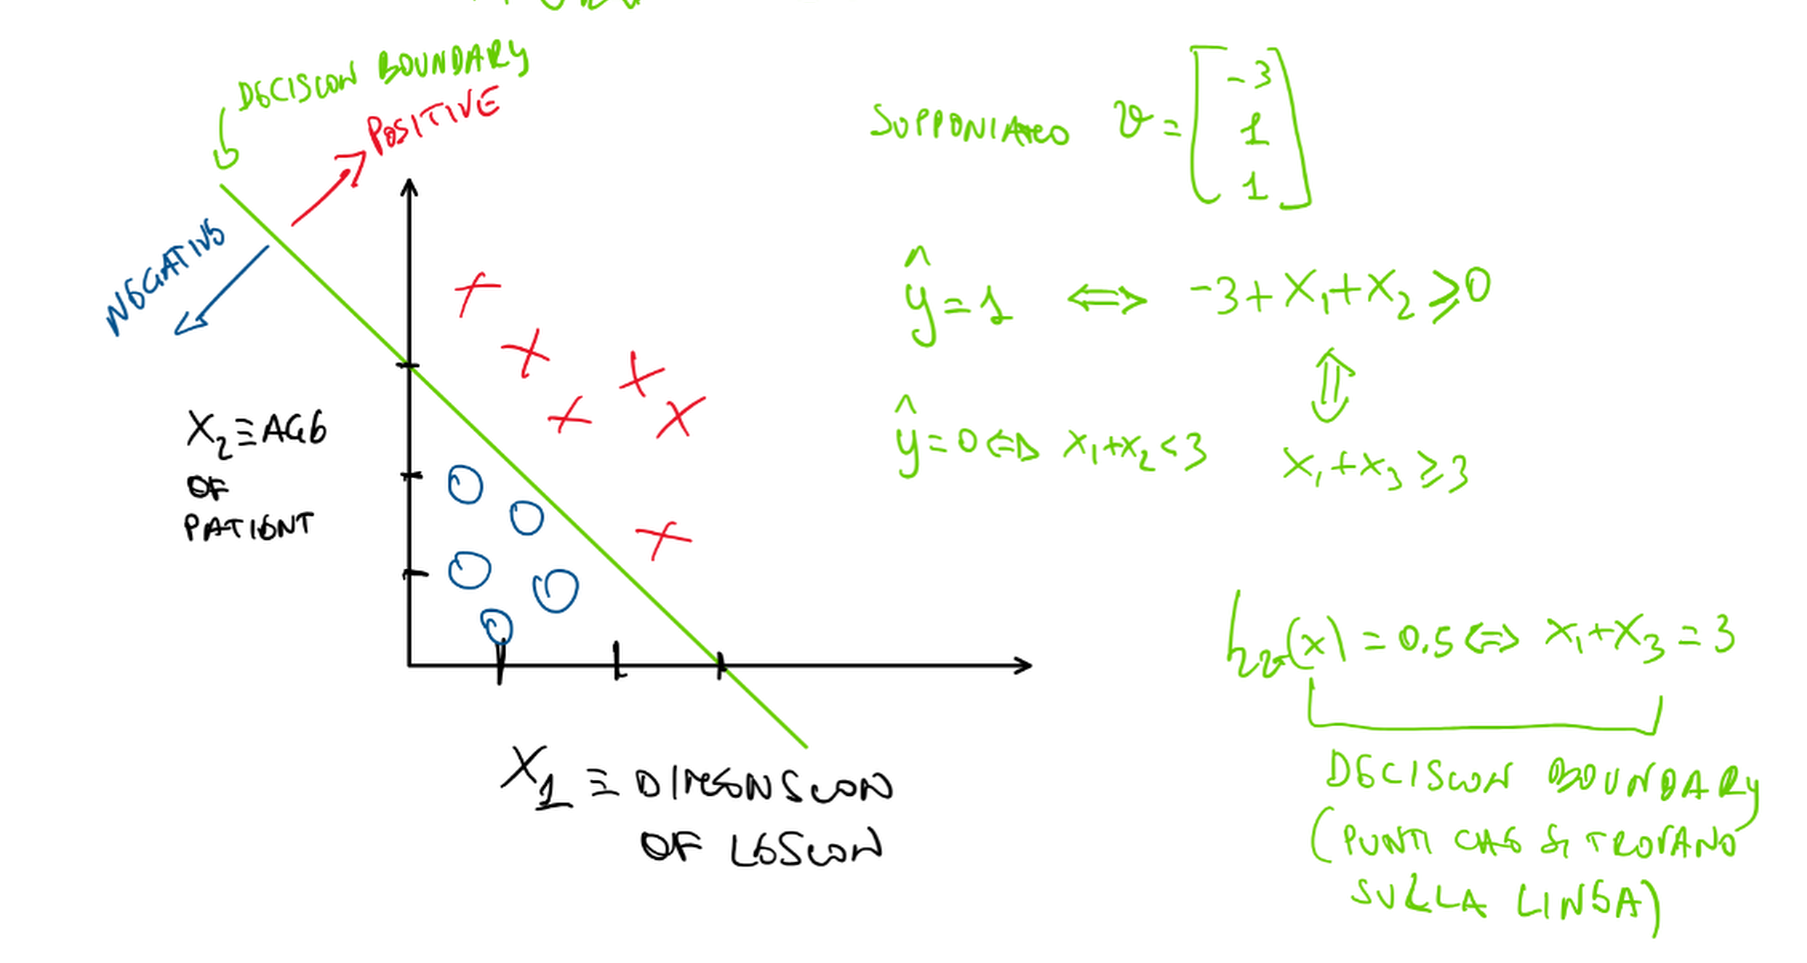 DECISION BOUNDARY
POSITIVE
NEGATIVE
X₂ ≡ AGE
OF
PATIENT
X₁ ≡ DIMENSION
OF LESION
SUPPONIAMO ϑ = [-3 1 1]
ŷ = 1 ⟺ -3 + X₁ + X₂ ≥ 0
⇕
ŷ = 0 ⟺ X₁ + X₂ < 3
X₁ + X₃ ≥ 3
hϑ(x) = 0.5 ⟺ X₁ + X₃ = 3
DECISION BOUNDARY
(PUNTI CHE SI TROVANO
SULLA LINEA)